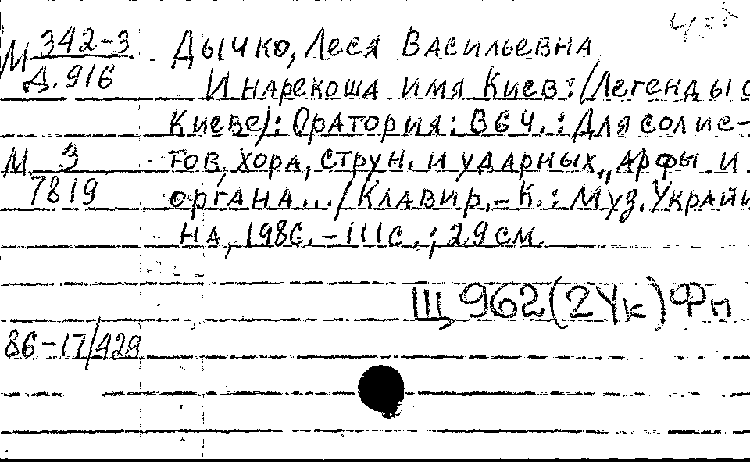 М 342-3 Дычко, Леся Васильевна
Д.916 И нарекоша имя Киев : (Легенды о
Киеве) : Оратория : В 6 ч. : Для солис-
М 3 тов, хора, струн. и ударных, арфы и
7819 органа... / Клавир. - К. : Муз. Украйи-
на, 1986. - 111 с. ; 29 см.
Щ 962(2Ук)Фп
86-17/429